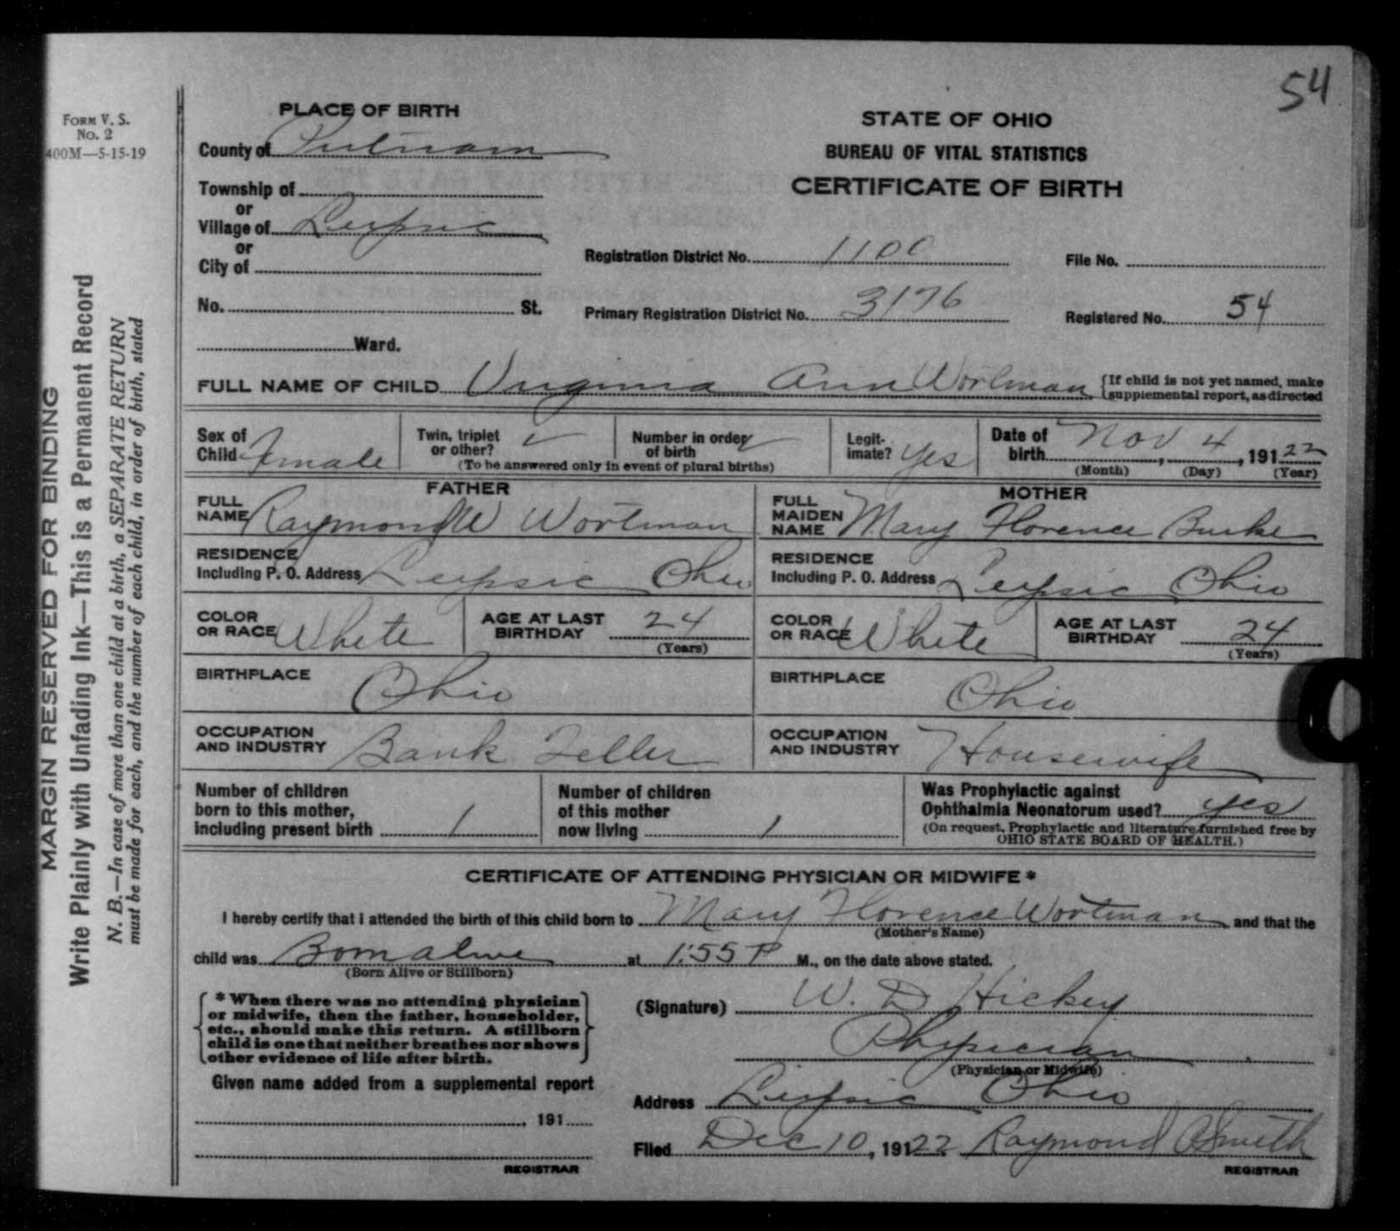 54
FORM V. S.
No. 2
400M—5-15-19
MARGIN RESERVED FOR BINDING
Write Plainly with Unfading Ink—This is a Permanent Record
N. B.—In case of more than one child at a birth, a SEPARATE RETURN
must be made for each, and the number of each child, in order of birth, stated
PLACE OF BIRTH
County of Putnam
Township of
or
Village of Leipsic
or
City of
No. St.
Ward.
STATE OF OHIO
BUREAU OF VITAL STATISTICS
CERTIFICATE OF BIRTH
Registration District No. 1100 File No.
Primary Registration District No. 3176 Registered No. 54
FULL NAME OF CHILD Virginia Ann Wortman {If child is not yet named, make
supplemental report, as directed
Sex of Child Female Twin, triplet or other? ✓ Number in order of birth ✓ Legit-imate? yes Date of birth Nov 4, 19122
(To be answered only in event of plural births) (Month) (Day) (Year)
FATHER MOTHER
FULL NAME Raymond W Wortman FULL MAIDEN NAME Mary Florence Burke
RESIDENCE Including P. O. Address Leipsic Ohio RESIDENCE Including P. O. Address Leipsic Ohio
COLOR OR RACE White AGE AT LAST BIRTHDAY 24 (Years) COLOR OR RACE White AGE AT LAST BIRTHDAY 24 (Years)
BIRTHPLACE Ohio BIRTHPLACE Ohio
OCCUPATION AND INDUSTRY Bank Teller OCCUPATION AND INDUSTRY Housewife
Number of children born to this mother, including present birth 1 Number of children of this mother now living 1 Was Prophylactic against Ophthalmia Neonatorum used? yes
(On request, Prophylactic and literature furnished free by
OHIO STATE BOARD OF HEALTH.)
CERTIFICATE OF ATTENDING PHYSICIAN OR MIDWIFE*
I hereby certify that I attended the birth of this child born to Mary Florence Wortman and that the
(Mother's Name)
child was Born alive at 1:55 P M., on the date above stated.
(Born Alive or Stillborn)
{*When there was no attending physician
or midwife, then the father, householder,
etc., should make this return. A stillborn
child is one that neither breathes nor shows
other evidence of life after birth.}
(Signature) W. D Hickey
Physician
(Physician or Midwife)
Given name added from a supplemental report
191
REGISTRAR
Address Leipsic Ohio
Filed Dec 10, 19122 Raymond Smith
REGISTRAR